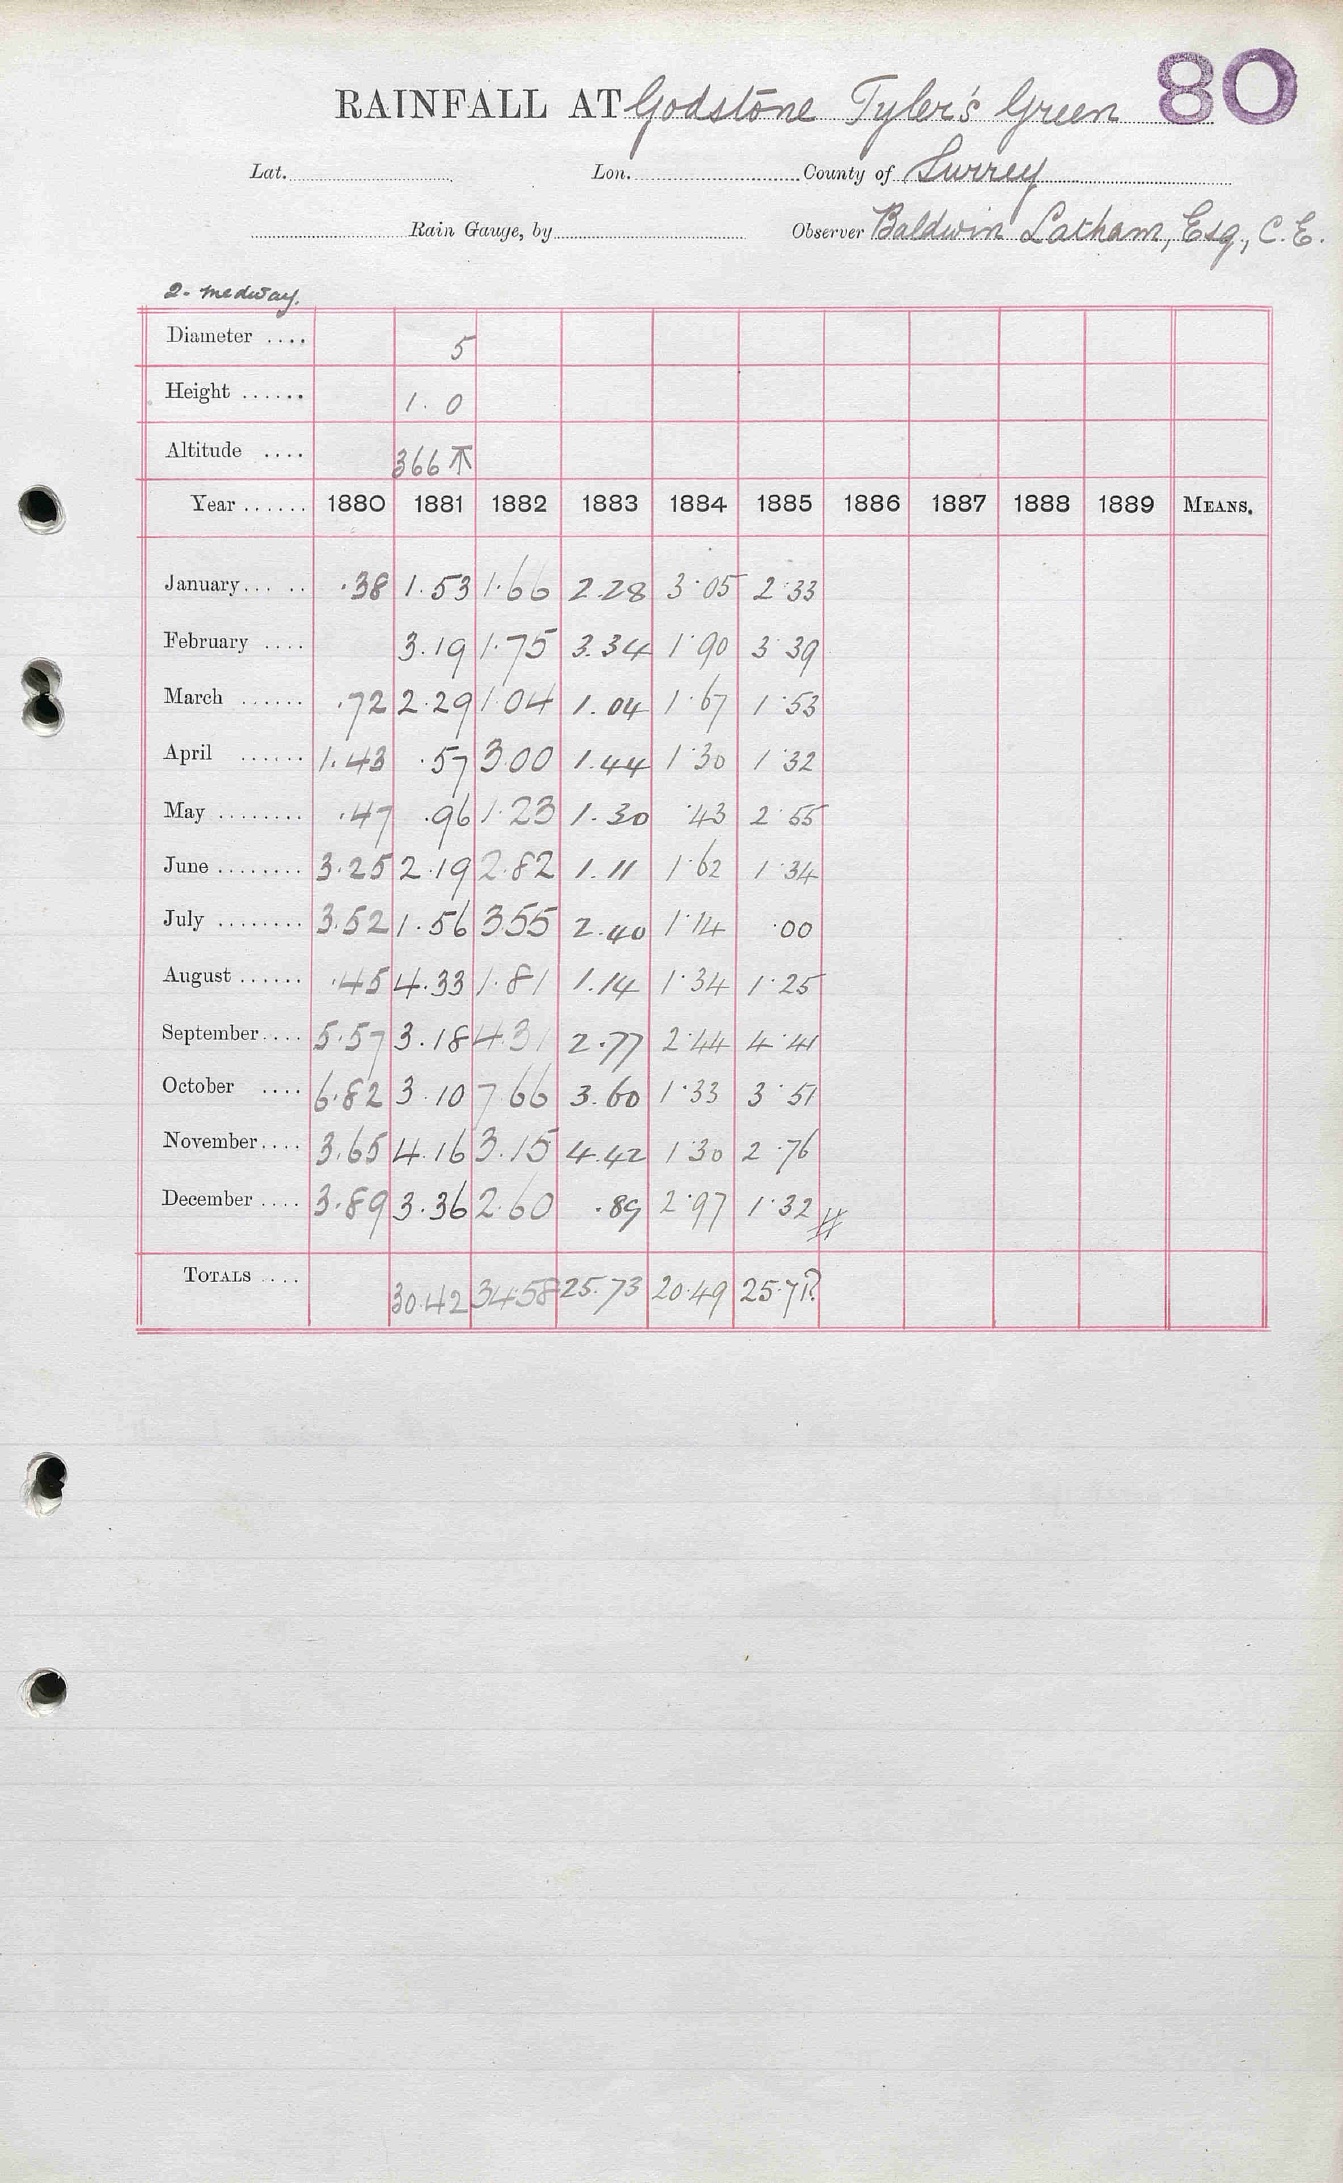 RAINFALL AT Godstone Tyler's Green 80
Lat. Lon. County of Surrey
Rain Gauge, by Observer Baldwin Latham, Esq., C.E.
2- medway.
Diameter .... 5
Height ...... 1. 0
Altitude .... 366
Year ...... 1880 1881 1882 1883 1884 1885 1886 1887 1888 1889 MEANS.
January ... .. .38 1.53 1.66 2.28 3.05 2.33
February .... 3.19 1.75 3.34 1.90 3.39
March ...... .72 2.29 1.04 1.04 1.67 1.53
April ...... 1.43 .57 3.00 1.44 1.30 1.32
May ........ .47 .96 1.23 1.30 .43 2.55
June ........ 3.25 2.19 2.82 1.11 1.62 1.34
July ........ 3.52 1.56 3.55 2.40 1.14 .00
August ...... .45 4.33 1.81 1.14 1.34 1.25
September .... 5.57 3.18 4.31 2.77 2.44 4.41
October .... 6.82 3.10 7.66 3.60 1.33 3.51
November .... 3.65 4.16 3.15 4.42 1.30 2.76
December .... 3.89 3.36 2.60 .89 2.97 1.32
TOTALS .... 30.42 34.58 25.73 20.49